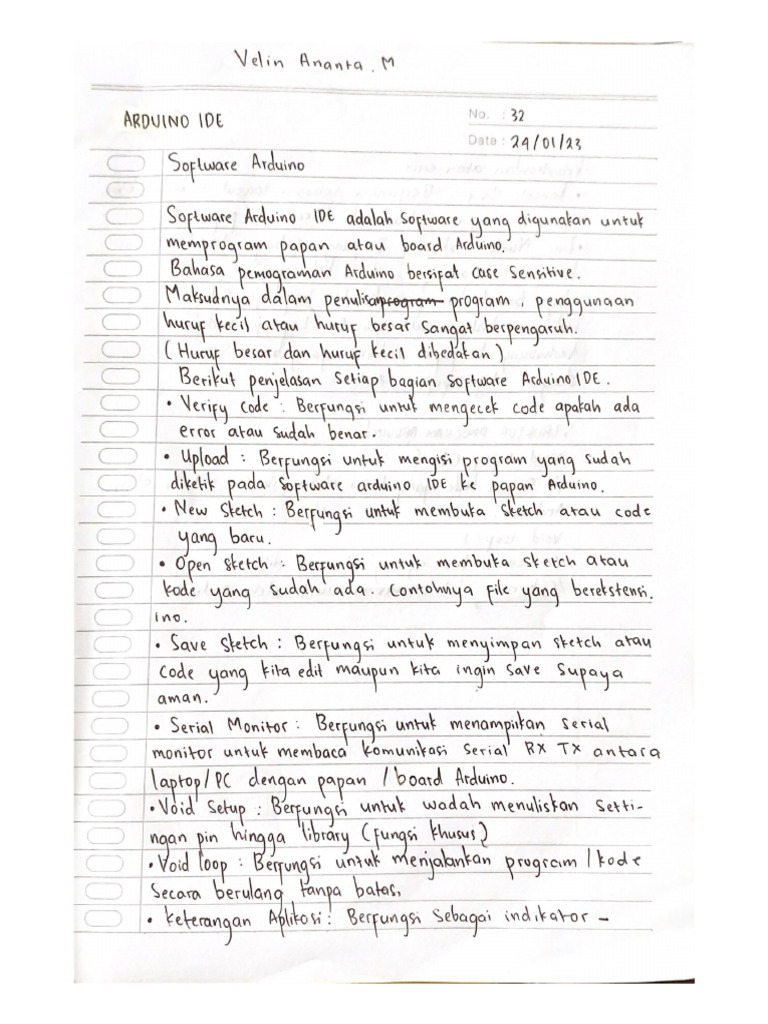 Velin Ananta. M
ARDUINO IDE
No. : 32
Date : 24/01/23
Software Arduino
Software Arduino IDE adalah software yang digunakan untuk
memprogram papan atau board Arduino.
Bahasa pemograman Arduino bersifat case sensitive.
Maksudnya dalam penulisan program program, penggunaan
huruf kecil atau huruf besar sangat berpengaruh.
(Huruf besar dan huruf kecil dibedakan)
Berikut penjelasan setiap bagian software Arduino IDE.
• Verify code : Berfungsi untuk mengecek code apakah ada
error atau sudah benar.
• Upload : Berfungsi untuk mengisi program yang sudah
diketik pada software arduino IDE ke papan Arduino.
• New Sketch : Berfungsi untuk membuka sketch atau code
yang baru.
• Open sketch : Berfungsi untuk membuka sketch atau
kode yang sudah ada. Contohnya file yang berekstensi.
ino.
• Save sketch : Berfungsi untuk menyimpan sketch atau
code yang kita edit maupun kita ingin save supaya
aman.
• Serial Monitor : Berfungsi untuk menampilkan serial
monitor untuk membaca komunikasi serial RX TX antara
laptop/PC dengan papan /board Arduino.
• Void Setup : Berfungsi untuk wadah menuliskan setti-
ngan pin hingga library (fungsi khusus)
• Void loop : Berfungsi untuk menjalankan program /kode
secara berulang tanpa batas,
• Keterangan Aplikosi : Berfungsi sebagai indikator -